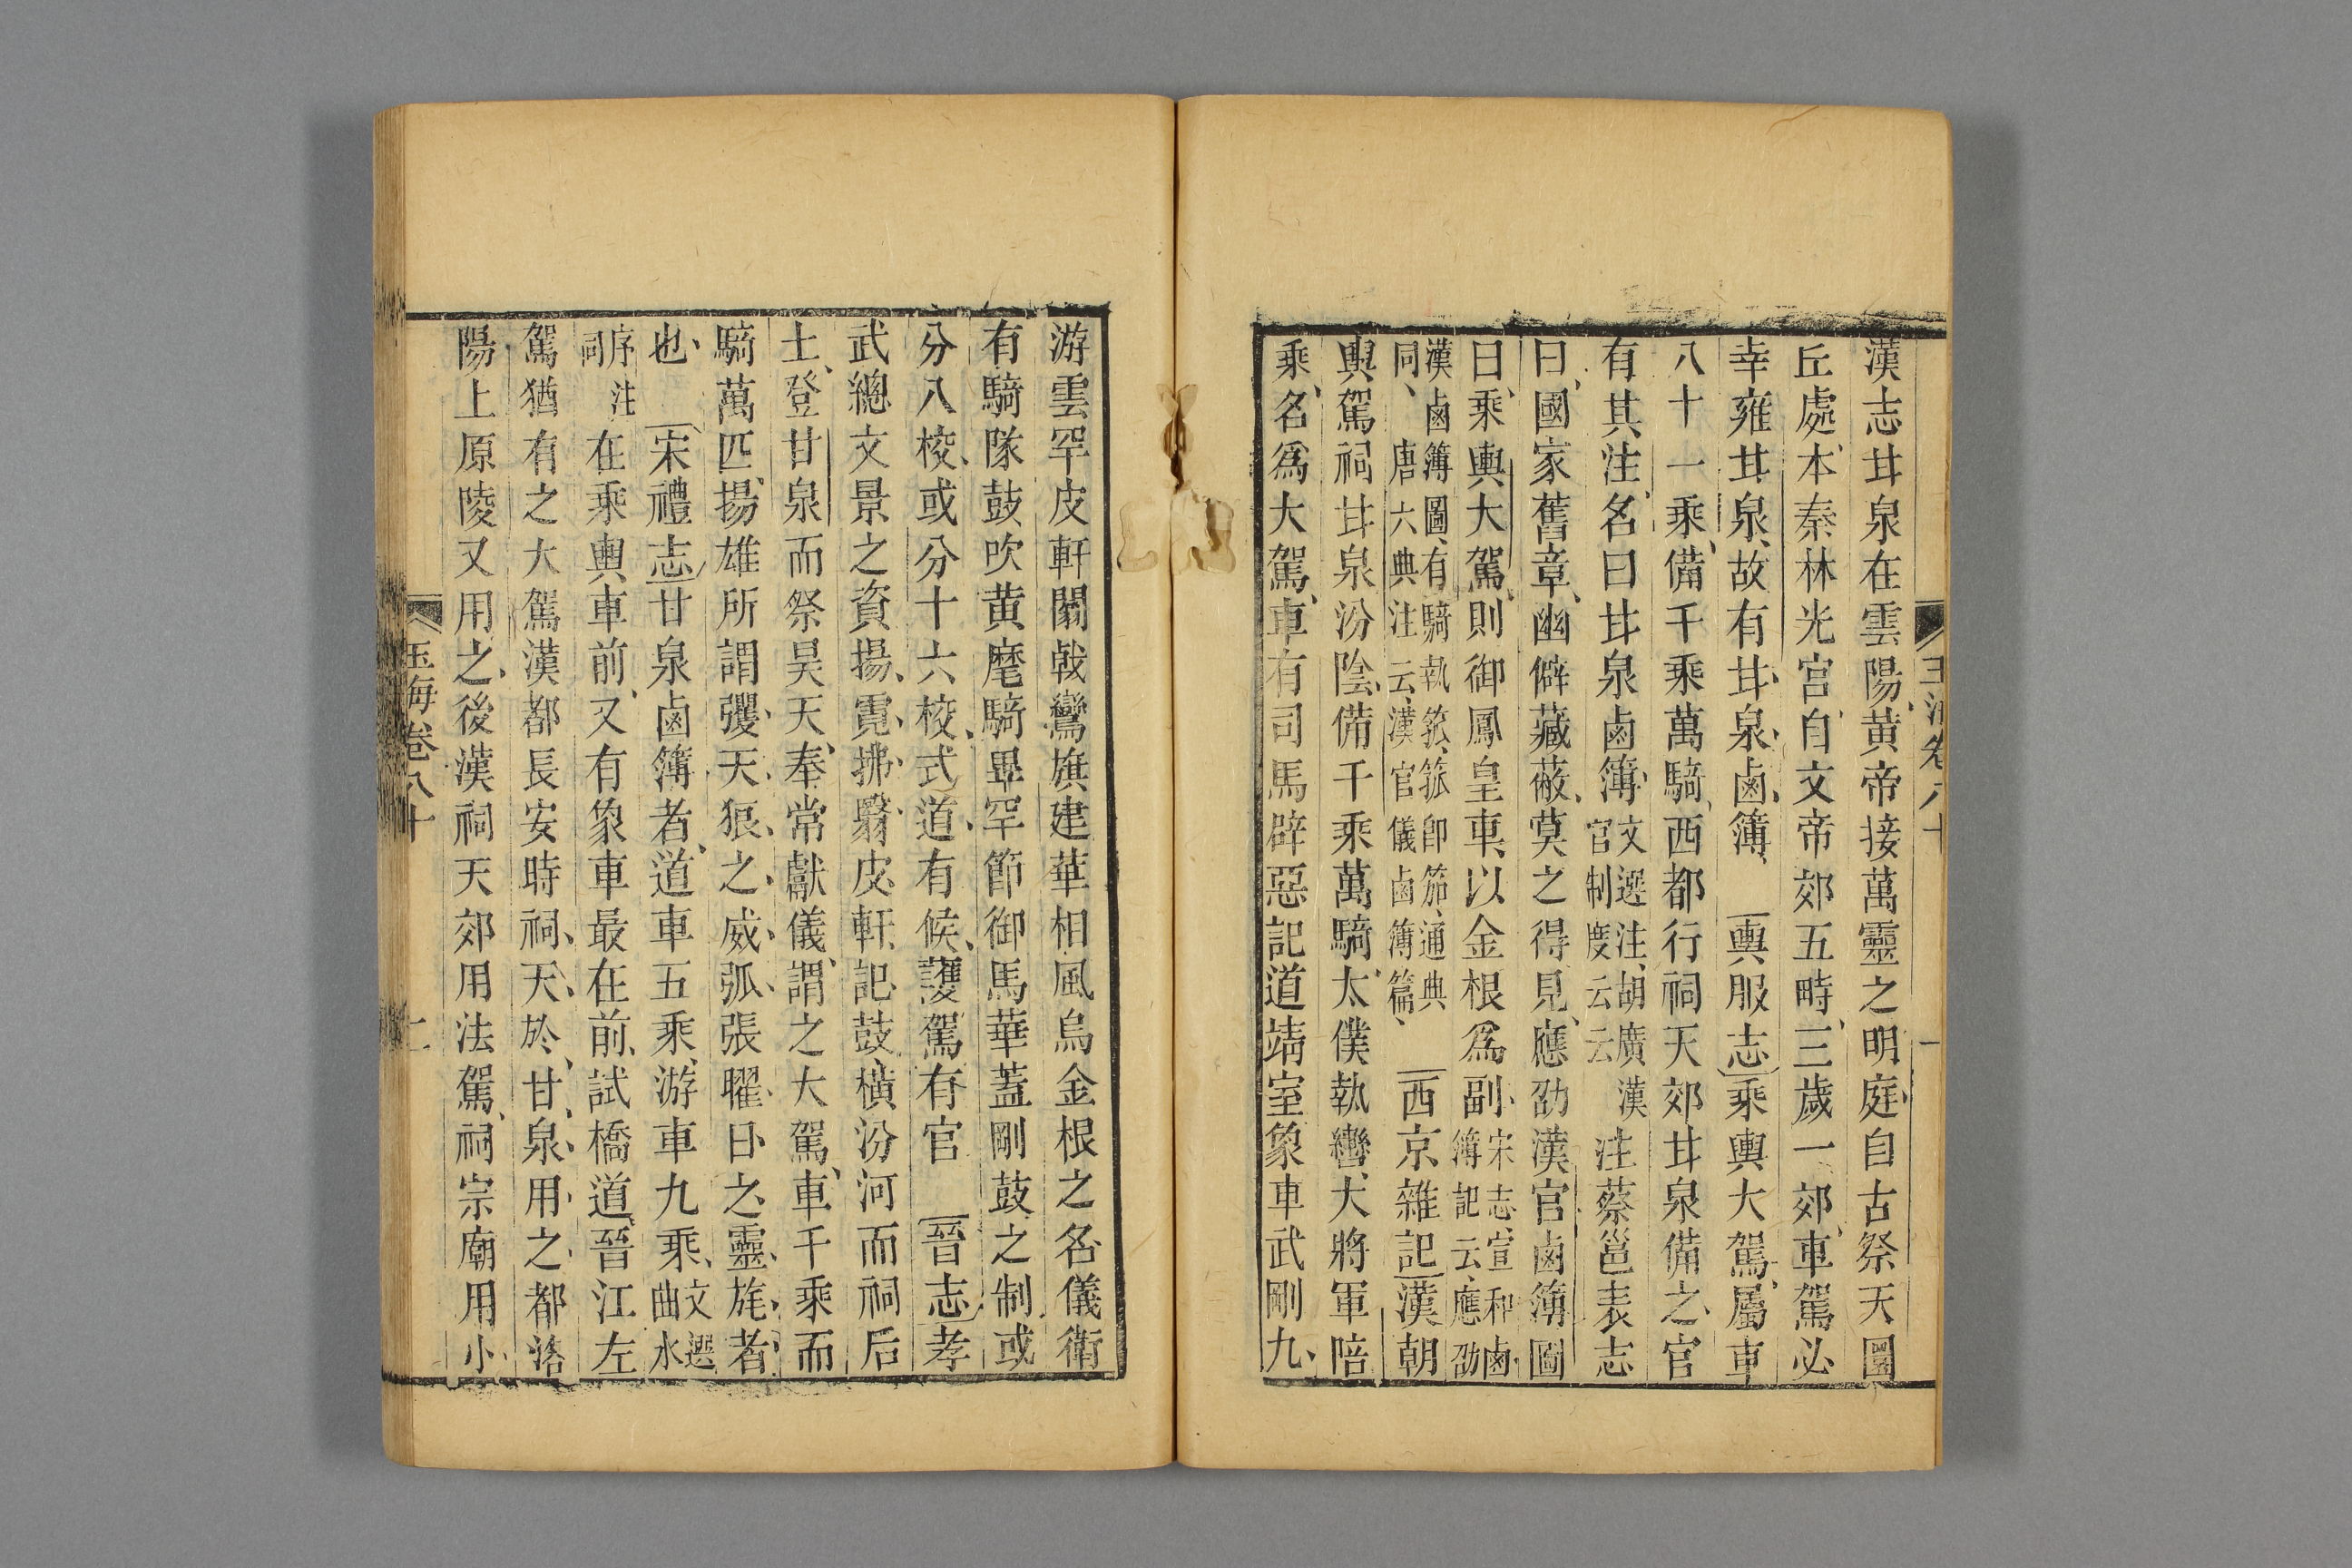 漢志甘泉在雲陽黄帝接萬靈之明庭自古祭天圜
丘處本秦林光宫自文帝郊五畤三歲一郊車駕必
幸雍甘泉故有甘泉鹵簿 輿服志乘輿大駕屬車
八十一乘備千乘萬騎西都行祠天郊甘泉備之官
有其注名曰甘泉鹵簿文選注胡廣漢官制度云云注蔡邕表志
曰國家舊章幽僻藏蔽莫之得見應劭漢官鹵簿圖
曰乘輿大駕則御鳳皇車以金根爲副宋志宣和鹵簿記云應劭
漢鹵簿圖有騎執箛箛卽笳通典同唐六典注云漢官儀鹵簿篇 西京雜記漢朝
輿駕祠甘泉汾陰備千乘萬騎太僕執轡大將軍陪
乘名爲大駕車有司馬辟惡記道靖室象車武剛九
玉海卷八十
游雲罕皮軒闟戟鸞旗建華相風烏金根之名儀衛
有騎隊鼓吹黄麾騎畢罕節御馬華蓋剛鼓之制或
分八校或分十六校式道有候護駕有官 晉志孝
武總文景之資揚霓拂翳皮軒記鼓横汾河而祠后
土登甘泉而祭昊天奉常獻儀謂之大駕車千乘而
騎萬匹揚雄所謂彏天狼之威弧張曜日之靈旄者
也 宋禮志甘泉鹵簿者道車五乘游車九乘文選曲水
序注祠在乘輿車前又有象車最在前試橋道晉江左
駕猶有之大駕漢都長安時祠天於甘泉用之都洛
陽上原陵又用之後漢祠天郊用法駕祠宗廟用小
玉海卷八十